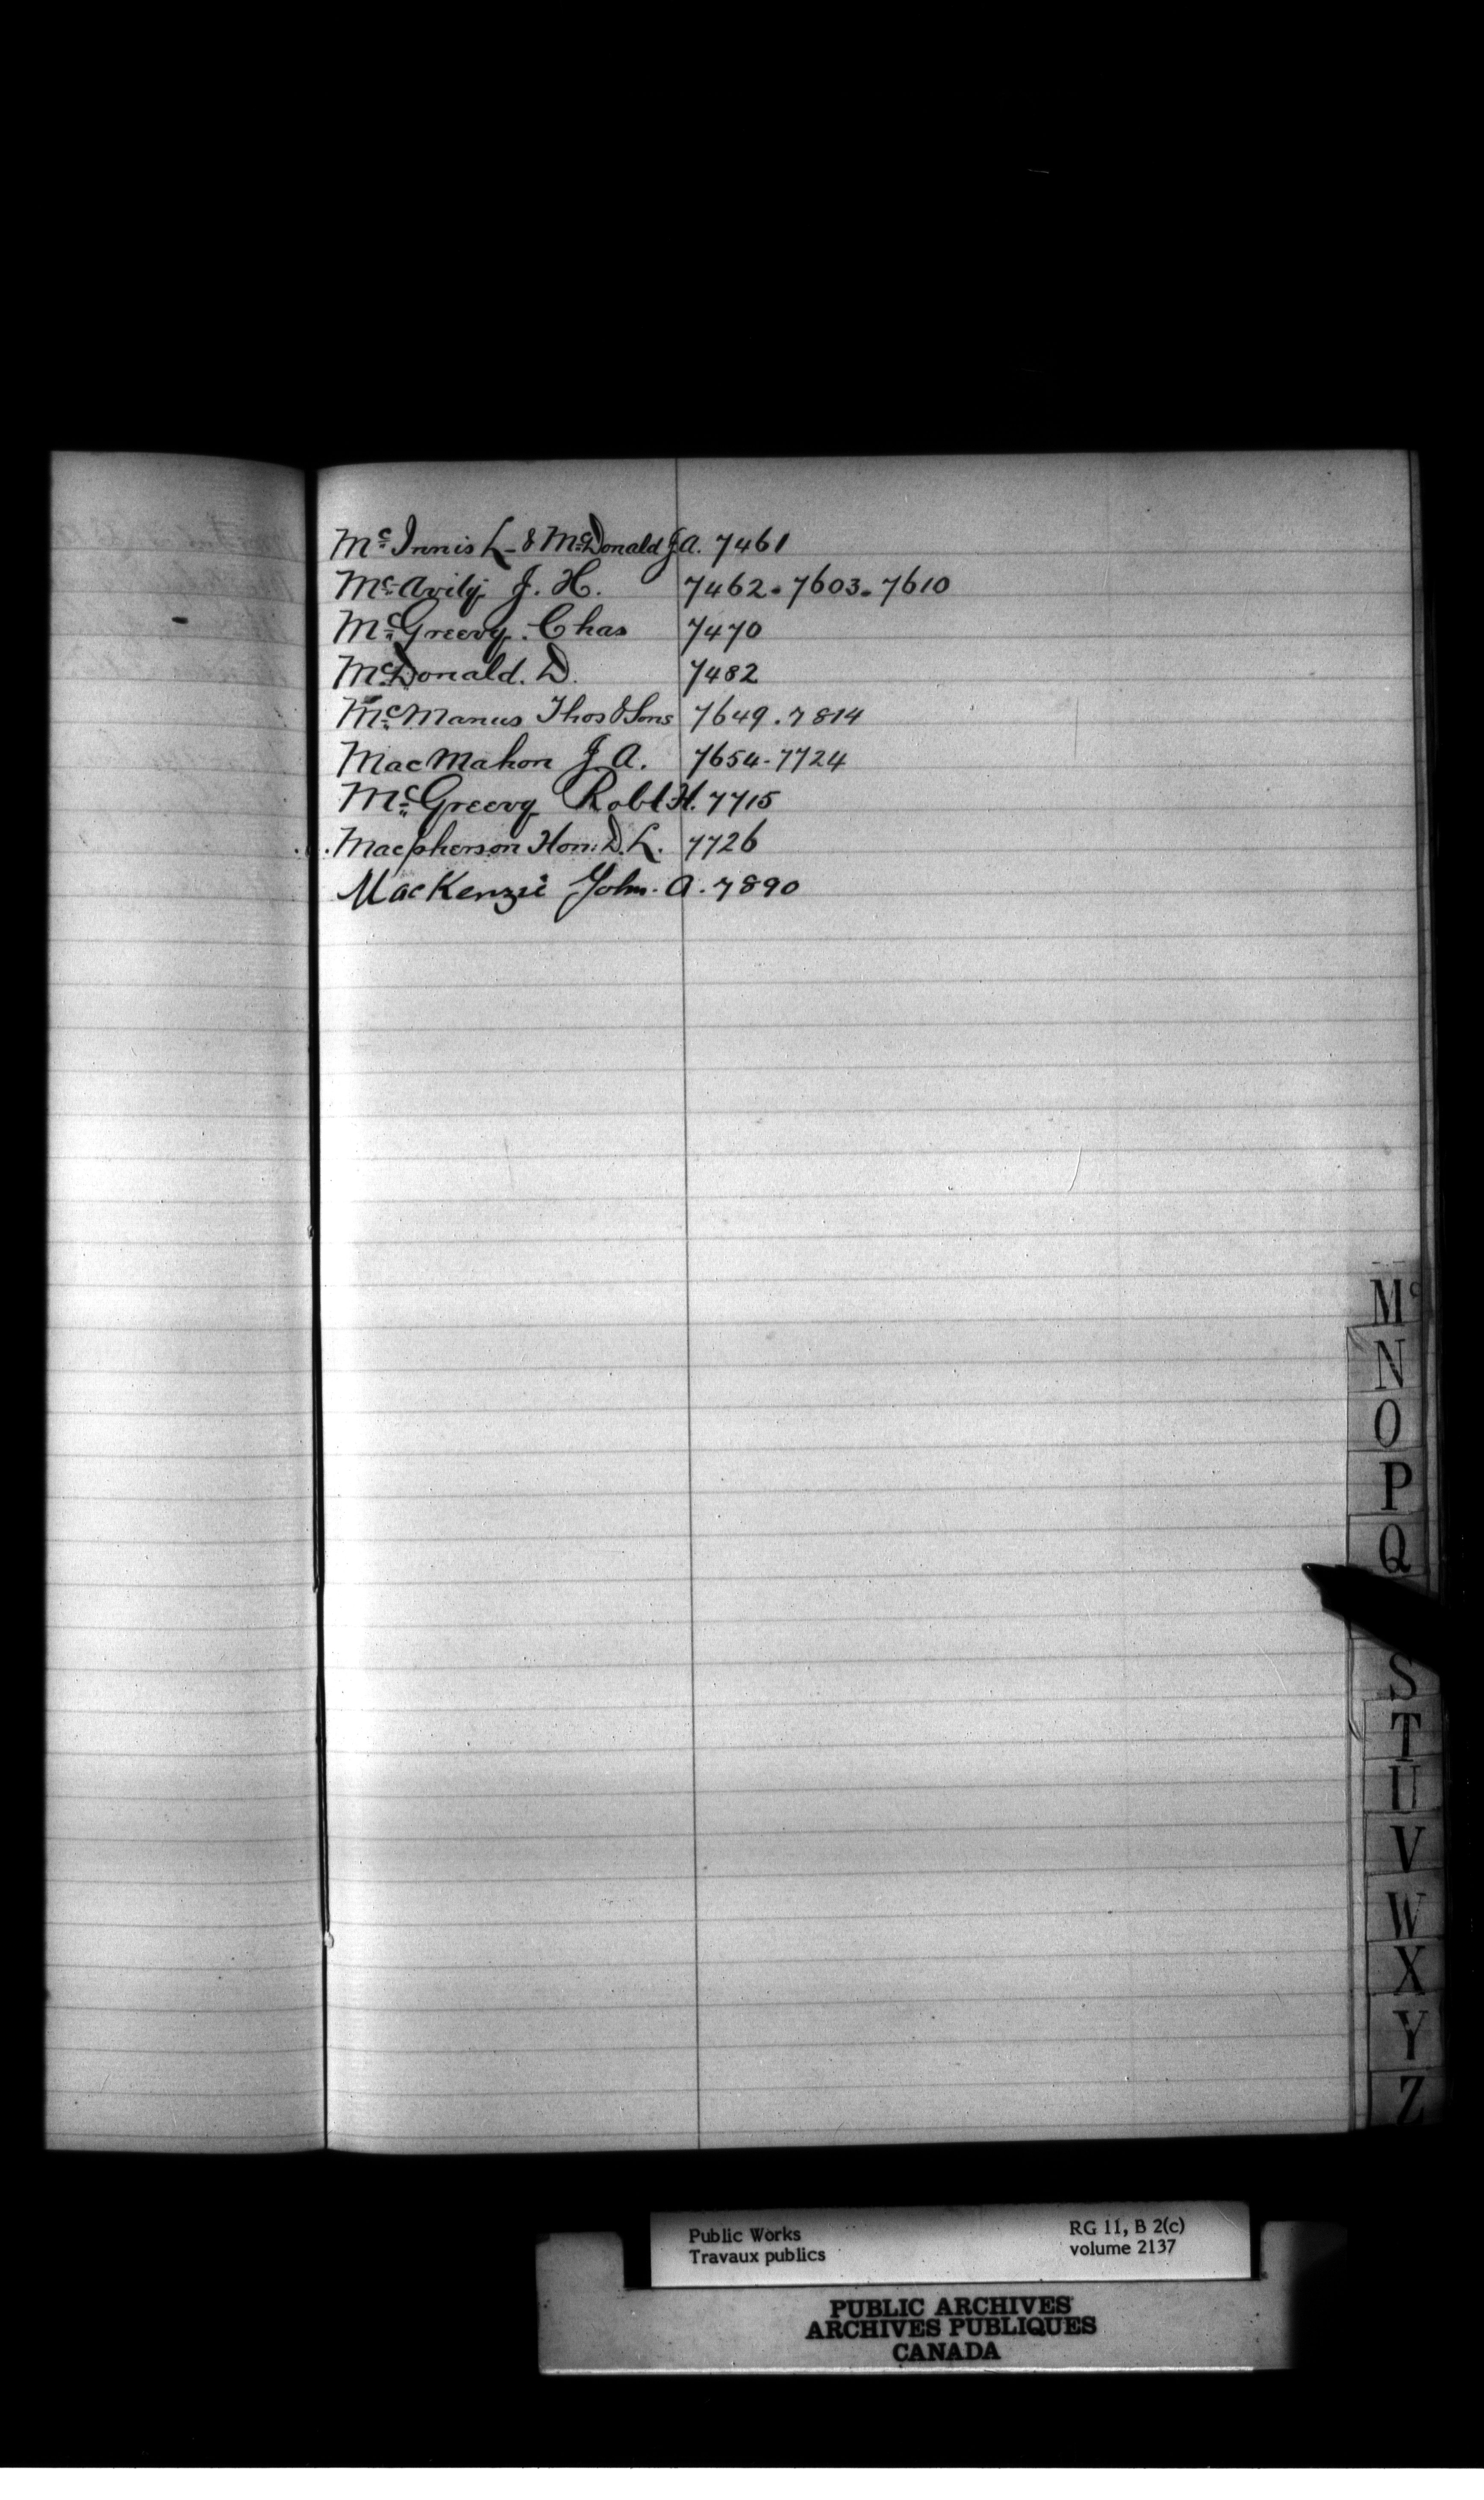 McInnis L. & McDonald J.A. 7461
McAvity J. H. 7462. 7603. 7610
McGreevy. Chas 7470
McDonald. D. 7482
McManus Thos & Sons 7649. 7814
MacMahon J. A. 7654-7724
McGreevy Robt H. 7715
Macpherson Hon: D. L. 7726
MacKenzie John. A. 7890
Mc
N
O
P
Q
S
T
U
V
W
X
Y
Z
Public Works RG 11, B 2(c)
Travaux publics volume 2137
PUBLIC ARCHIVES
ARCHIVES PUBLIQUES
CANADA